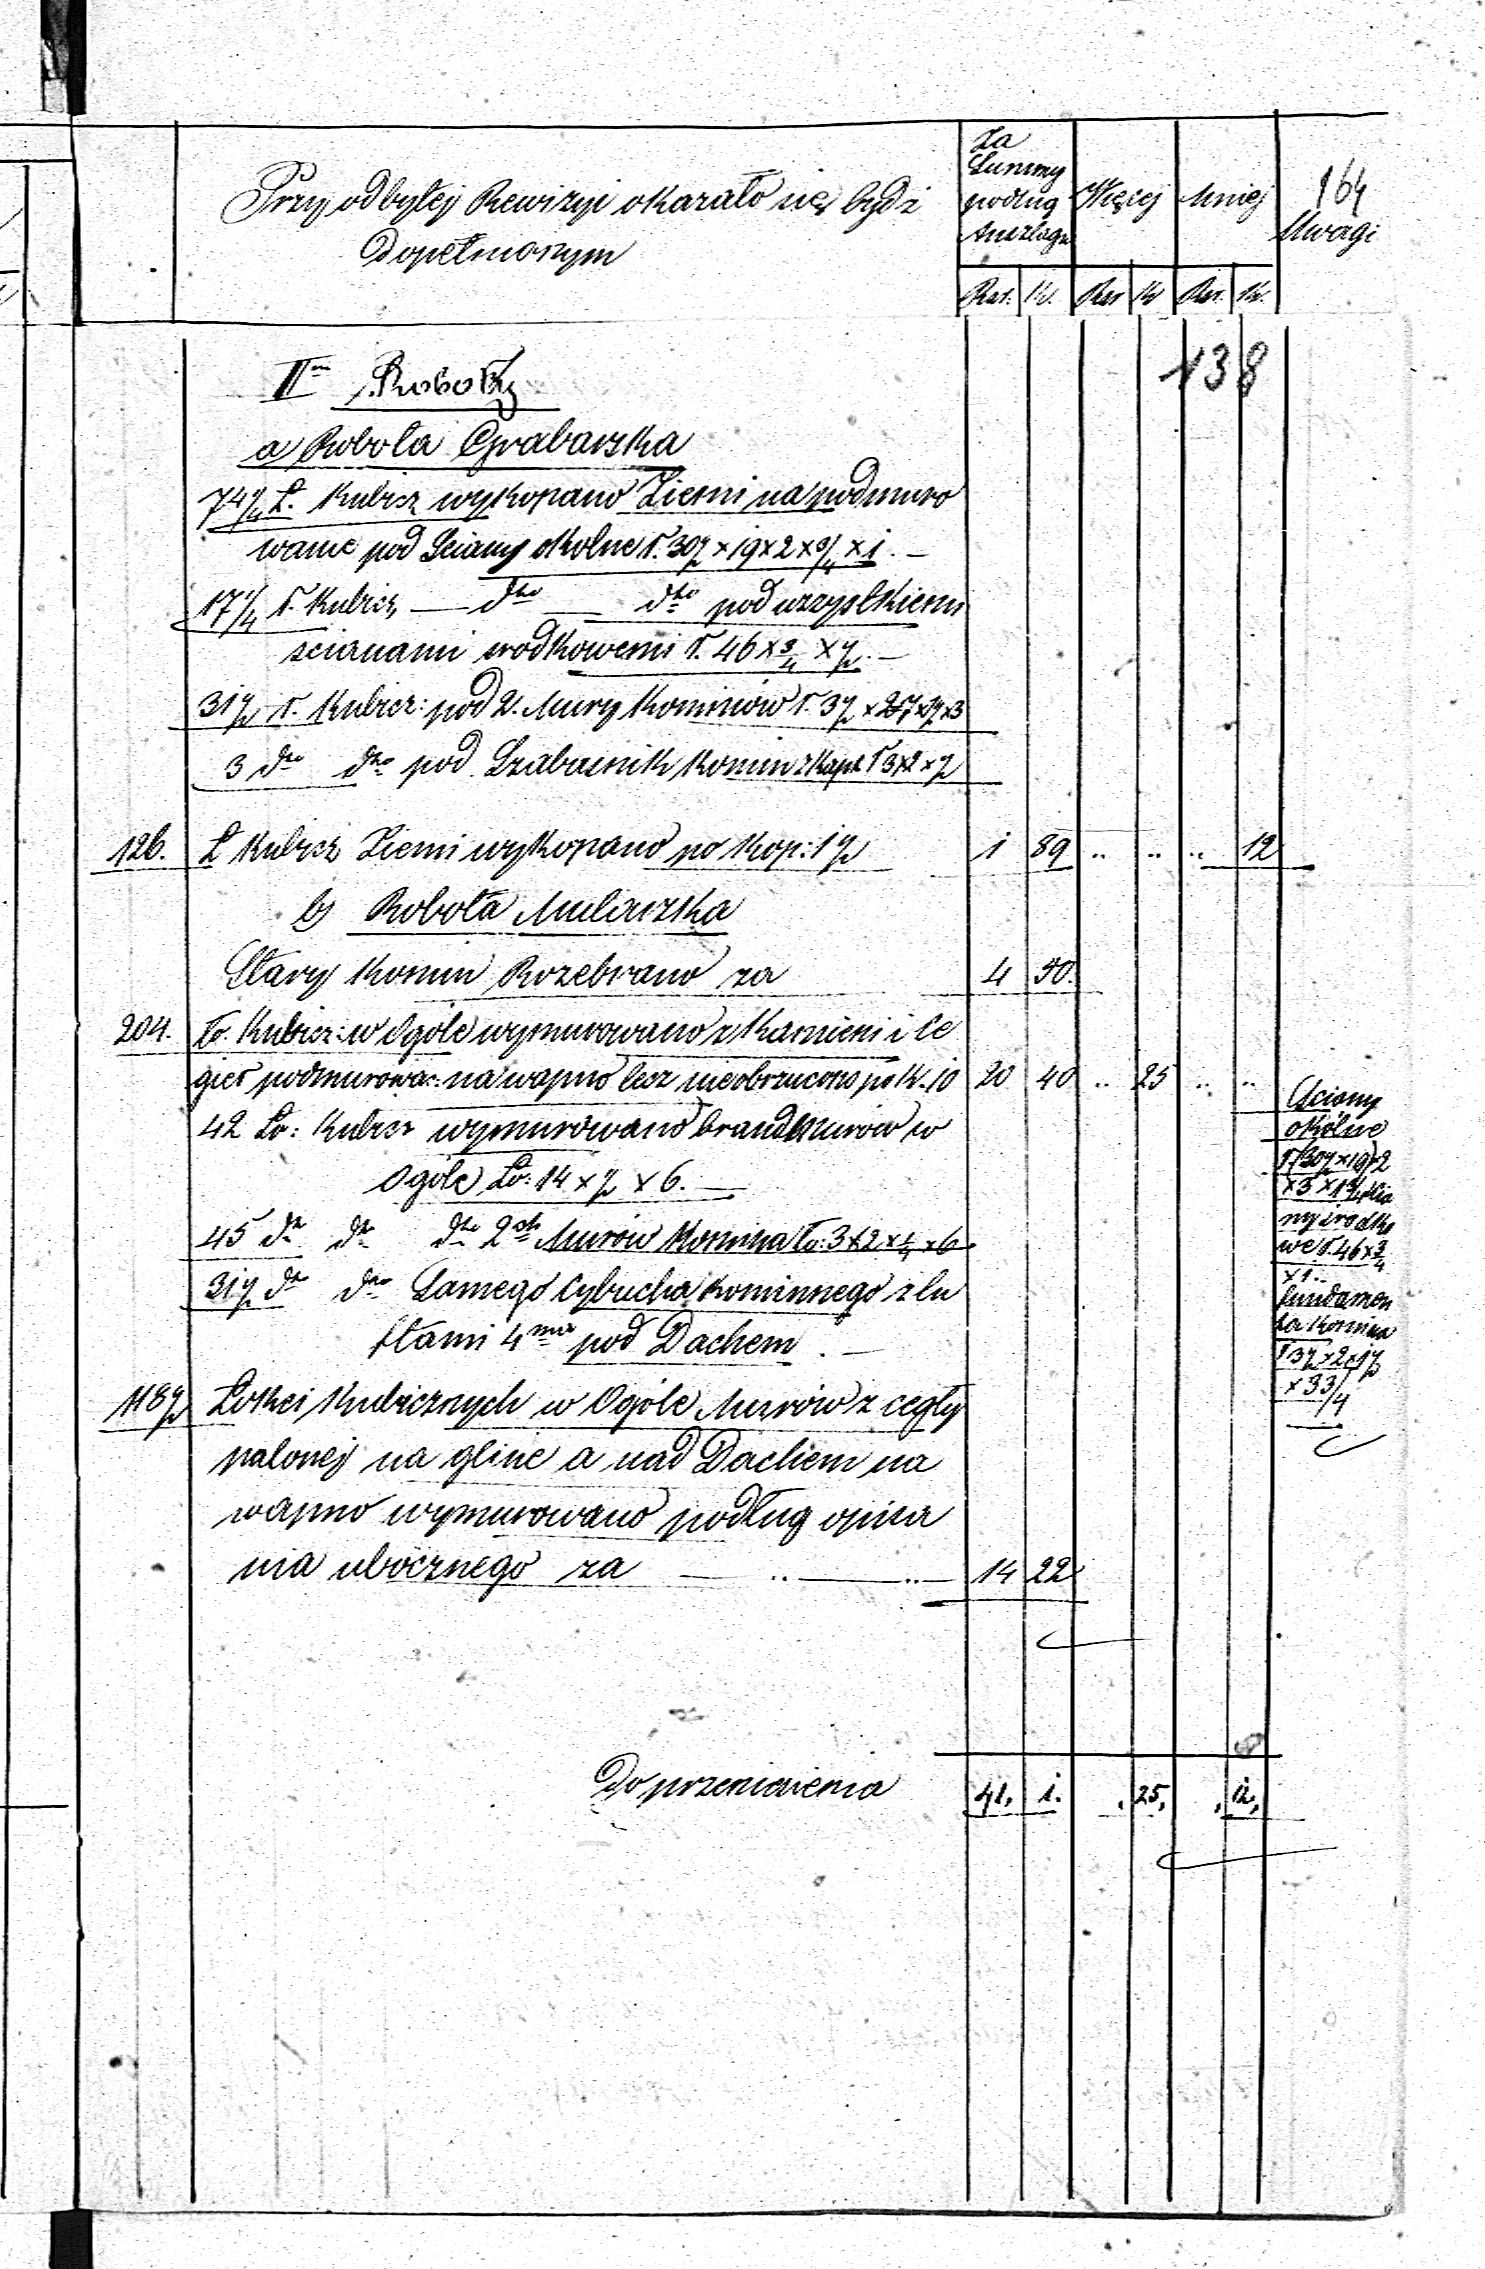 Przy odbytej Rewizyi okazało się bydź
Dopełnionym
Za
Summy
podług
Anszlagu
Więcej
Mniej
164
Uwagi
Rsr. K.
Rsr K
Rsr. K.
138
IIᵒ Roboty
a Robota Grabarska
74½ Ł. Kubicz wykopano Ziemi na podmuro
wanie pod Sciany okolne Ł. 30½ × 19 × 2 × ¾ × 1. —
17¼ Ł. Kubicz, — dto — dto pod wszystkiemi
scianami srodkowemi Ł. 46 × ¾ × ½. —
31½ Ł. Kubicz: pod 2. Mury Kominów Ł. 3½ ×
3 dto dto pod Szabasnik Komin z Kapą Ł 3×2×½
126. Ł Kubicz Ziemi wykopano po Kop: 1½ 1 89 .. .. .. 12
b) Robota Mularska
Stary Komin Rozebrano za 4 50.
204. Ło. Kubicz: w Ogóle wymurowano z Kamieni i Ce
gieł podmurowa: na wapno lecz nieobrzucono po K. 10 20 40 .. 25 .. ..
42 Ło: Kubicz wymurowano brandmurów w
Ogóle Ło: 14 × ½ × 6. —
45 dto dto dto 2ch Murów Komina Ło: 3×2× × 6
31½ dto dto Samego Cybucha Kominnego z lu
ftami 4ma pod Dachem. —
118½ Łokci Kubicznych w Ogóle Murów z cegły
palonej na glinę a nad Dachem na
wapno wymurowano podług opisa
nia ubocznego za — .. — .. — 14 22
Sciany
okólne
Ł(30½×19)×2
×3×1¾ Scia
ny srodko
we Ł. 46×¾
×1..
fundamen
ta Komina
Ł 3½×2×1½
×33/4
Do przeniesienia 41, 1. , 25, , 12,